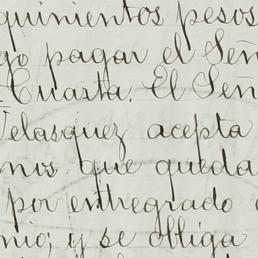 quinientos pesos
go pagar el Señ
Cuarta. El Señ
Velasquez acepta
nos que queda
por entregado
nio; y se obliga